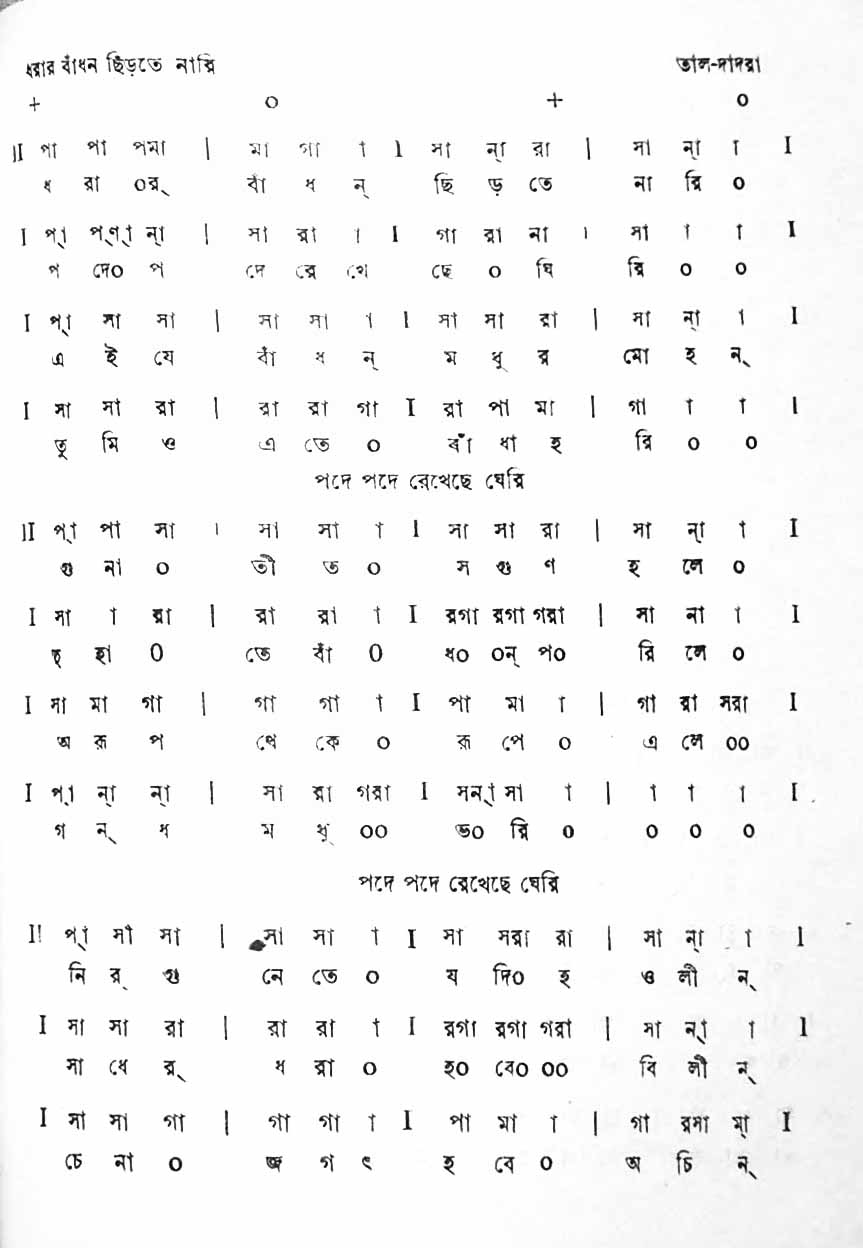 ধরার বাঁধন ছিঁড়তে নারি তাল-দাদরা
+ ০ + ০
II পা পা পমা | মা গা া I সা ন্া রা | সা ন্া া I
ধ রা ০র্ বাঁ ধ ন্ ছিঁ ড় তে না রি ০
I প্া প্ণ্া ন্া | সা রা া I গা রা না । সা া া I
প দে০ প দে রে খে ছে ০ ঘি রি ০ ০
I প্া সা সা | সা সা া I সা সা রা | সা ন্া া I
এ ই যে বাঁ ধ ন্ ম ধু র মো হ ন্
I সা সা রা | রা রা গা I রা পা মা | গা া া I
তু মি ও এ তে ০ বাঁ ধা হ রি ০ ০
পদে পদে রেখেছে ঘেরি
II প্া পা সা । সা সা া I সা সা রা | সা ন্া া I
গু না ০ তী ত ০ স গু ণ হ লে ০
I সা া রা | রা রা া I রগা রগা গরা | সা না া I
ই হা ০ তে বাঁ ০ ধ০ ০ন্ প০ রি লে ০
I সা মা গা | গা গা া I পা মা া | গা রা সরা I
অ রূ প থে কে ০ রূ পে ০ এ লে ০০
I প্া ন্া ন্া | সা রা গরা I সন্া সা া | া া া I
গ ন্ ধ ম ধু ০০ ভ০ রি ০ ০ ০ ০
পদে পদে রেখেছে ঘেরি
II প্া সা সা | সা সা া I সা সরা রা | সা ন্া া I
নি র্ গু নে তে ০ য দি০ হ ও লী ন্
I সা সা রা | রা রা া I রগা রগা গরা | সা ন্া া I
সা ধে র্ ধ রা ০ হ০ বে০ ০০ বি লী ন্
I সা সা গা | গা গা া I পা মা া | গা রসা ম্া I
চে না ০ জ গ ৎ হ বে ০ অ চি ন্